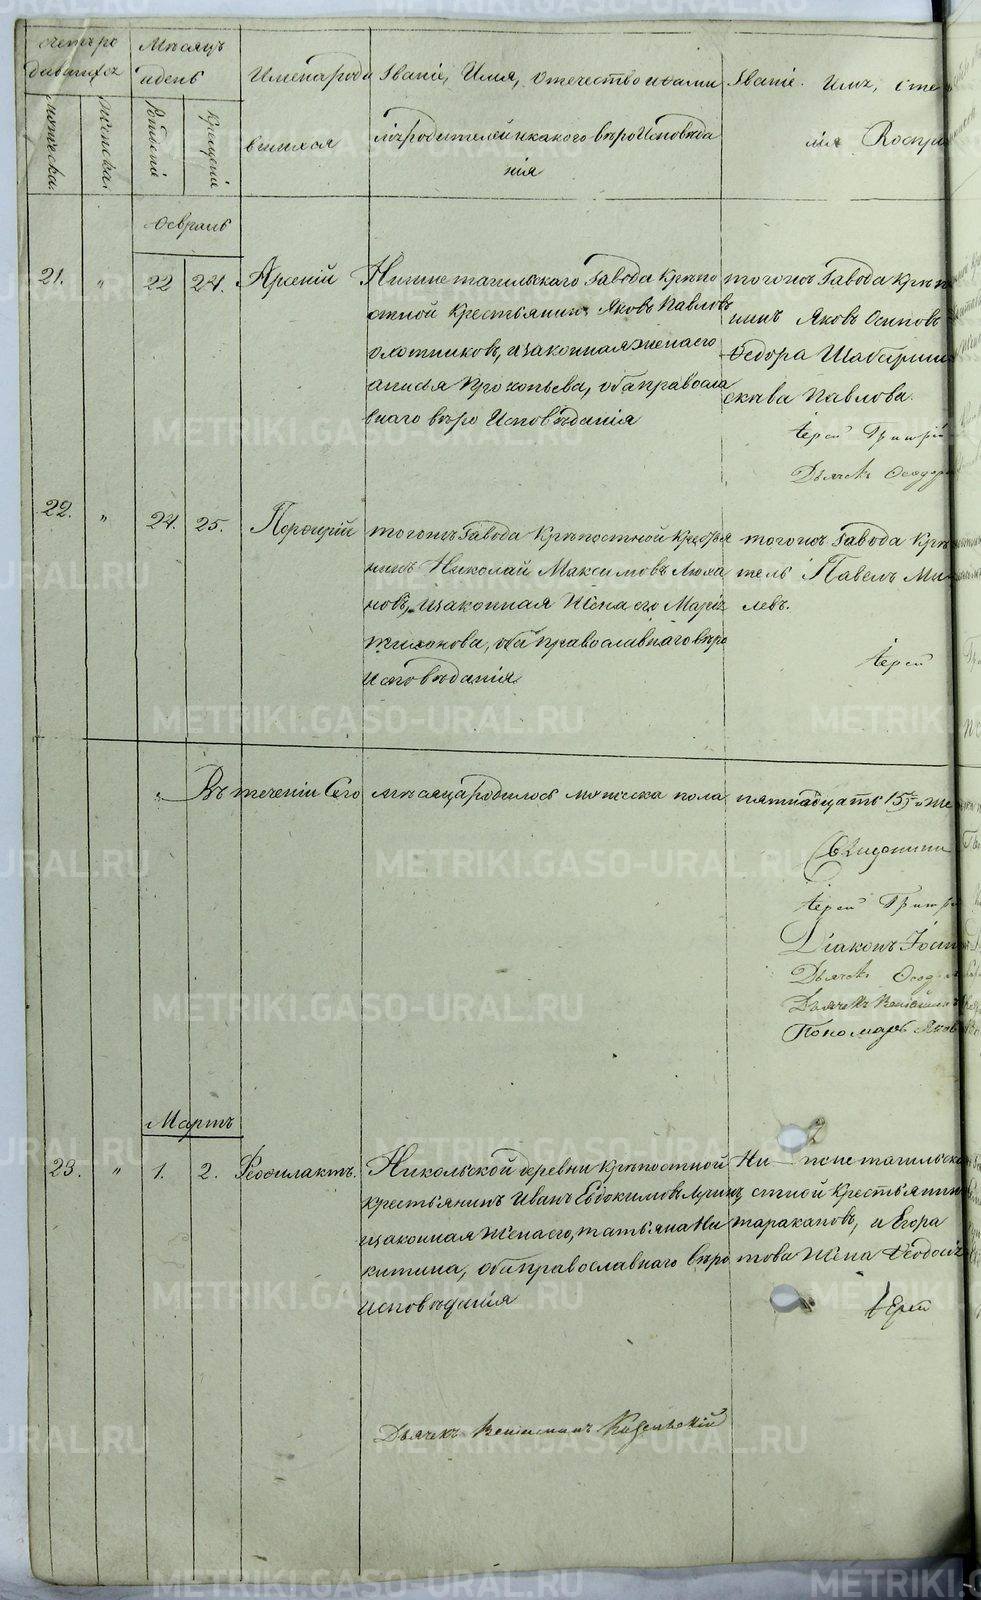 Мѣсяцъ
и день
Имена роди
вшихся
Званіе, Имя, Отечество и фами
лія родителей и какого вѣроисповѣда
нія
Званіе. Имя, Оте
лія Воспрі
мужеска.
женска.
Рожденія
Крещенія
Февраль
21. " 22 24. Арсеній
Нижнетагильскаго Завода Крѣпо
стной Крестьянинъ Яковъ Павловъ
Охотниковъ, и законная жена его
Прокопьева, оба православ
внаго вѣро Исповѣданія
тогожъ Завода Крѣп
нинъ Яковъ Осиповъ
Федора
Павлова.
Іерей Григорій
Дьячекъ Ѳеодор
22. " 24. 25. Порфирій
тогожъ Завода Крѣпостной Крестья
нинъ Николай Максимовъ
новъ, и законная Жена его Марія
Тихонова, оба православнаго вѣро
Исповѣданія
тогожъ Завода Крѣ
тель Павелъ Ми
левъ.
Іерей
Въ теченіи Сего мѣсяца родилось мужеска пола пятнадцать 15 и же
Іерей Григорі
Діаконъ
Дьячекъ Ѳеодор
Дьячекъ Веніаминъ
Пономарь Яков
Мартъ
23. " 1. 2. Феофилактъ.
Никольской деревни Крѣпостной
Крестьянинъ Иванъ Евдокимовъ
и законная Жена его, татьяна Ни
китина, оба православнаго вѣро
исповѣданія
Нижнетагильска
стной Крестьянин
таракановъ, и Егора
това Жена Феодосія
Іерей
Дьячекъ Веніаминъ Кисельскій
METRIKI.GASO-URAL.RU